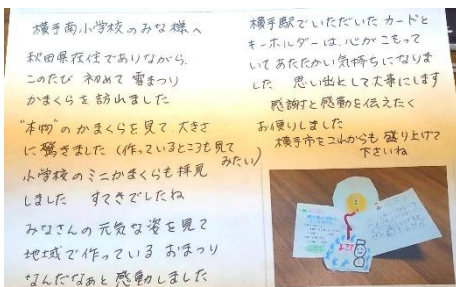 横手南小学校のみな様へ
秋田県在住でありながら、
このたび 初めて 雪まつり
かまくらを訪れました
"本物"のかまくらを見て、大きさ
に驚きました(作っているところも見て
みたい)
小学校のミニかまくらも拝見
しました すてきでしたね
みなさんの元気な姿を見て
地域で作っている おまつり
なんだなぁと感動しました
横手駅でいただいた カードと
キーホルダーは、心がこもって
いてあたたかい気持ちになりま
した 思い出として大事にします
感謝と感動を伝えたく
お便りしました
横手市をこれからも盛り上げて
下さいね